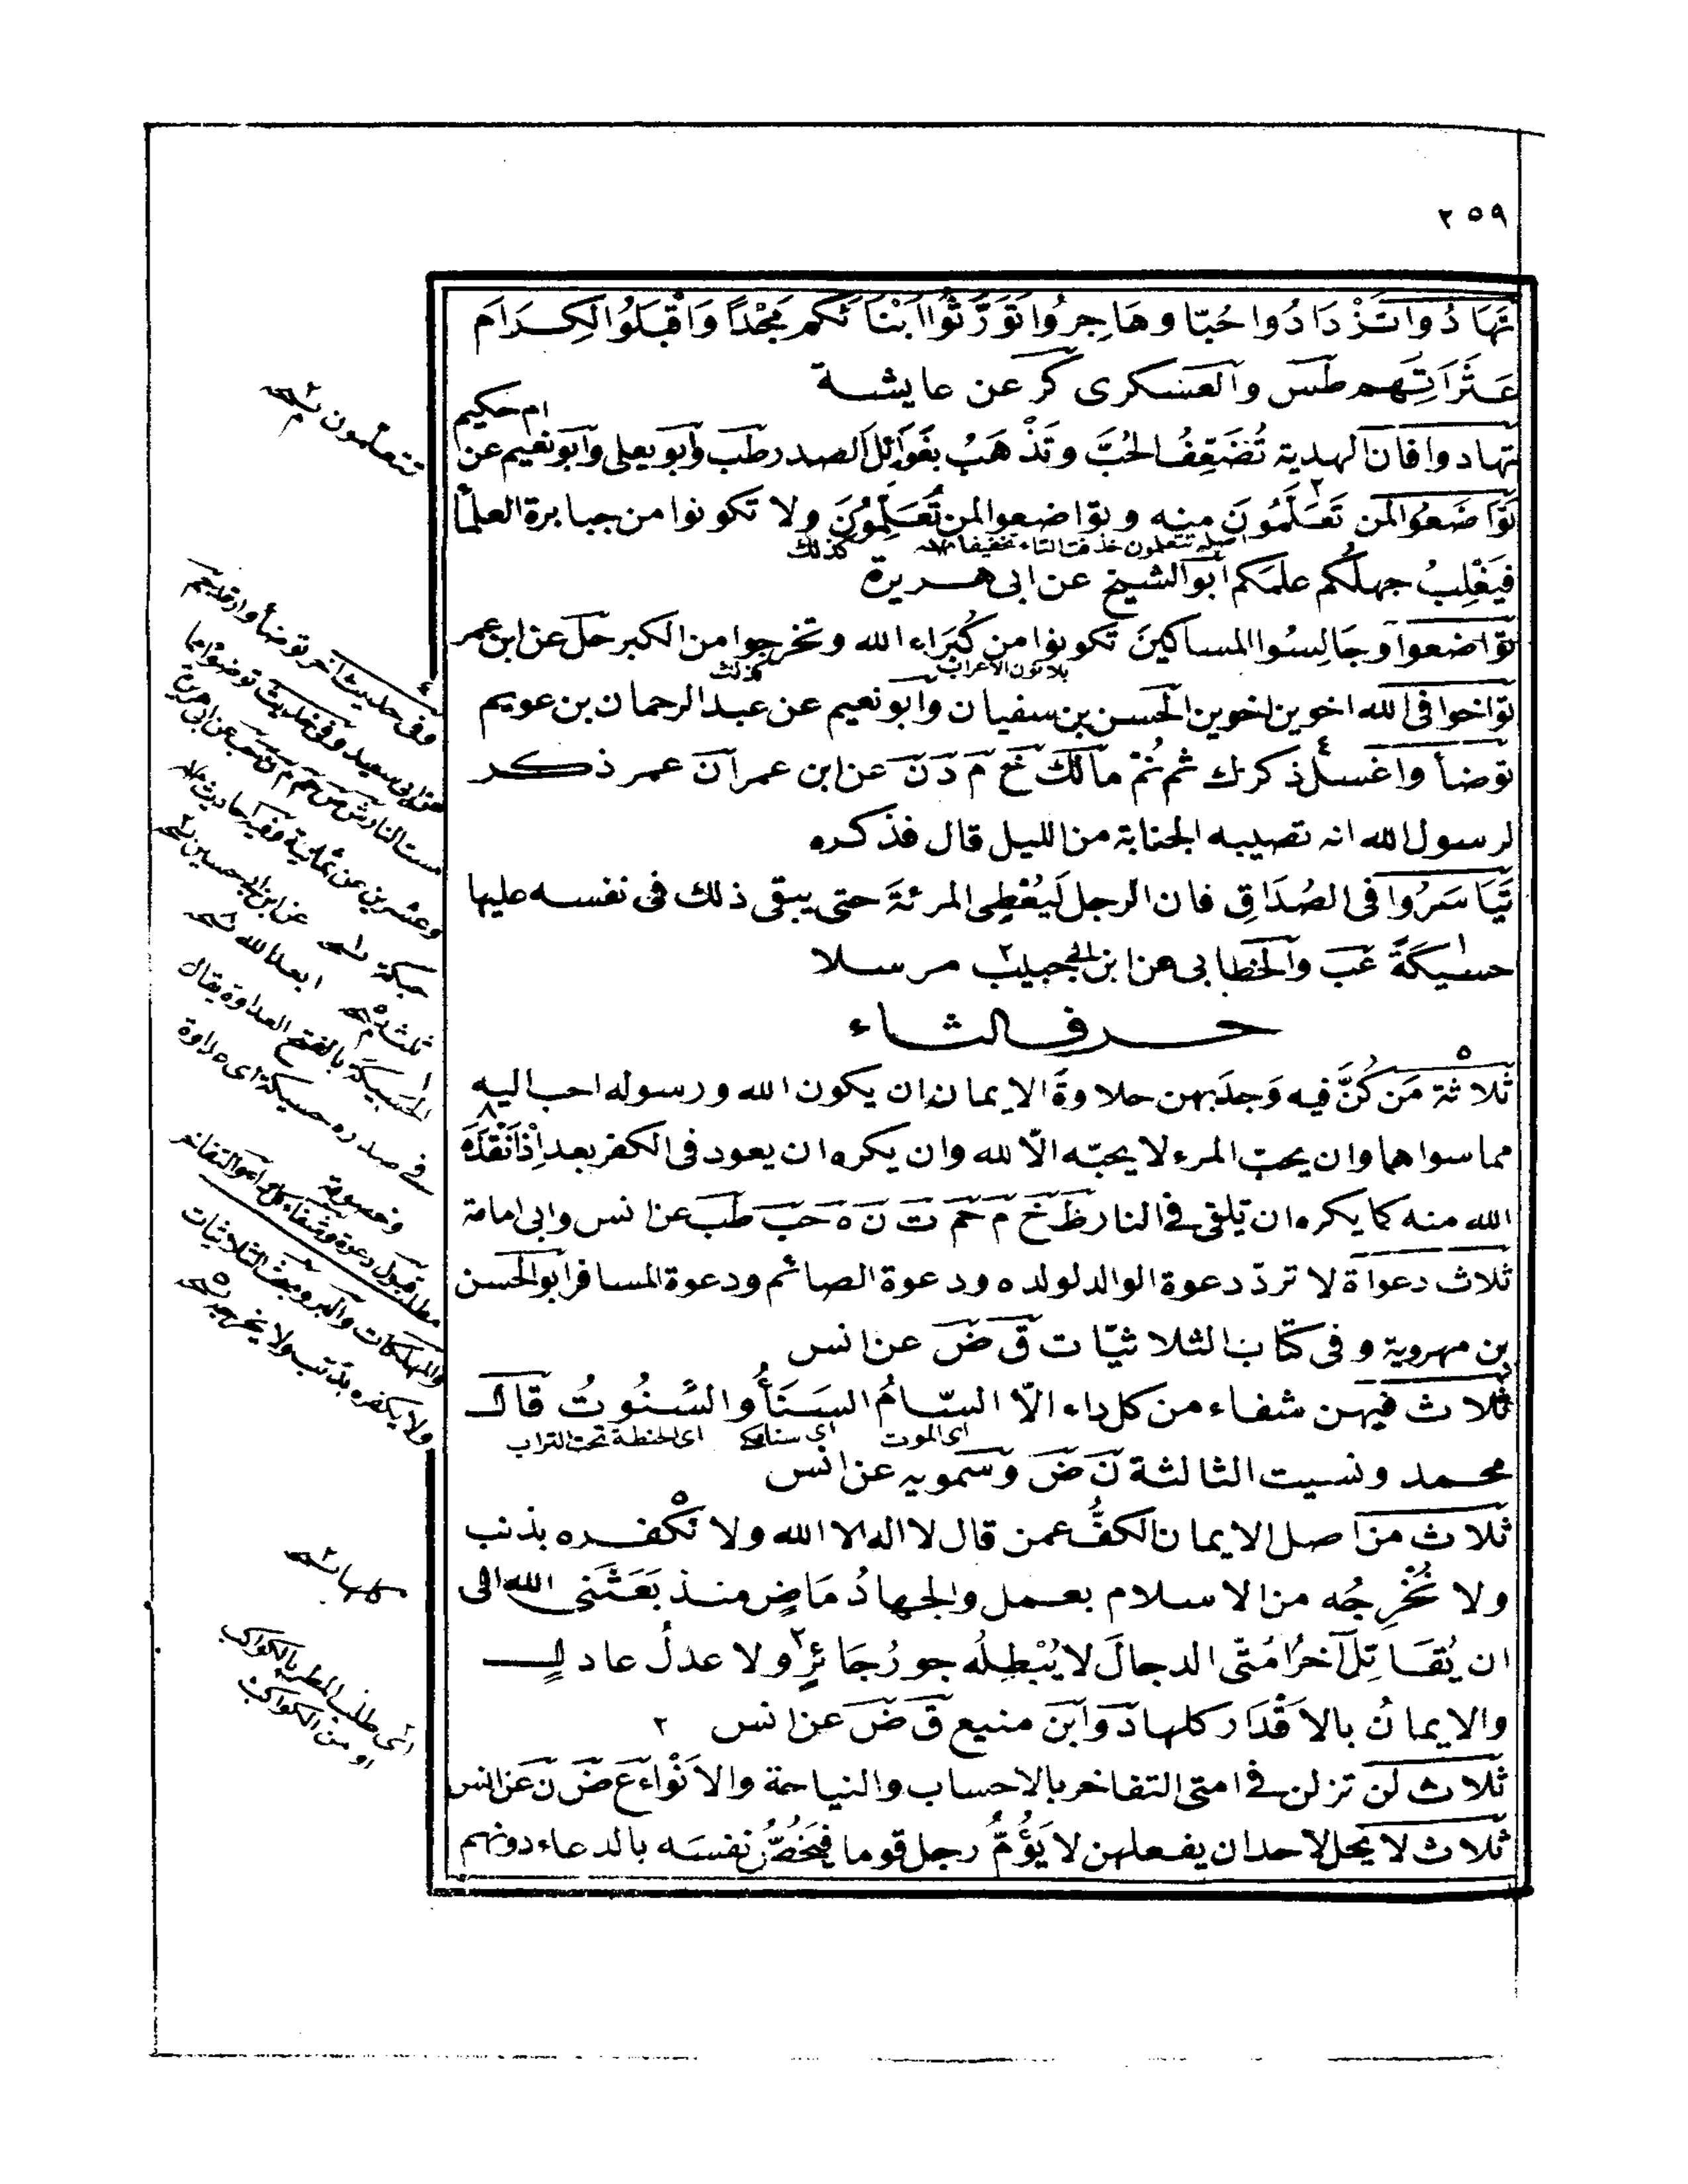 ٢٥٩
تَهَادُوا تَزْدَادُوا حُبّا وهَاجِرُوا تَوَرَّثُوا اَبْنَائَكم مَجْدًا وَاَقْبِلوُا الكِرَامَ
عَثَرَاتِهم طس والعسكرى كر عن عايشة
ام حكيم
تهادوا فان الهدية تُضَعِّفُ الحُبَّ وتَذْهَبُ بغَوَائِلَ الصدر طب وابو يعلى وابو نعيم عن
تَوَاضَعُوا لمَن تَعَلَّمُونَ منه وتواضعوا لمن تُعَلِّمُونَ ولا تكونوا من جبابرة العلماً
اصله تتعلمون حذفت التاء تخفيفا
كذلك
فيَغْلِبُ جهلُكم علمَكم ابو الشيخ عن ابى هريرة
تواضعوا وجَالِسُوا المساكينَ تكونوا من كُبَرَاء الله وتخرجوا من الكبر حل عن ابن عمر
بلا نون الاعراب
كذلك
تواخوا فى الله اخوين اخوين الحسن بن سفيان وابو نعيم عن عبد الرحمان بن عويم
توضأ واغسل ذكرك ثم نُمْ مالك خ م د ن عن ابن عمر ان عمر ذكر
لرسول الله انه تصيبه الجنابة من الليل قال فذكره
تَيَاسَرُوا فى الصُدَاقِ فان الرجل لَيُعْطِى المرئةَ حتى يبقى ذلك فى نفسه عليها
حسيكَةً عب والخطابى عن ابن ابى حبيب مرسلا
حرف الثاء
ثلاثة مَن كُنَّ فيه وَجدَ بهن حلاوةَ الايمان ان يكون الله ورسوله احب اليه
مما سواهما وان يحبّ المرء لا يحبّه الاّ لله وان يكره ان يعود فى الكفر بعد اِذْ اَنْقَذَهُ
الله منه كما يكره ان يلقى فى النار ظ خ م حم ت ن ه حب طب عن انس وابى امامة
ثلاث دعواة لا تردّ دعوة الوالد لولده ودعوة الصائم ودعوة المسافر ابو الحسن
بن مهروية وفى كتاب الثلاثيّات ق ض عن انس
ثلاث فيهن شفاء من كل داء الاّ السّامُ السَنَأُ والسُنُوتُ قال
اى الموت
اى سنامكى
اى الحنطة تحت التراب
محمد ونسيت الثالثة ن ض وسمويه عن انس
ثلاث من اصل الايمان الكفُّ عمن قال لا اله الا الله ولا نكْفره بذنب
ولا نُخْرِجُه من الاسلام بعمل والجهادُ مَاضٍ منذ بَعَثَنى الله الى
ان يُقَاتِلَ آخرُ اُمّتى الدجالَ لا يُبْطِلُه جورُ جَائِرٍ ولا عدلُ عادلٍ
والايمانُ بالاَقْدَار كلها د وابن منيع ق ض عن انس
ثلاث لن تزلن فى امتى التفاخر بالاحساب والنياحة والاَنْواء ع ض ن عن انس
ثلاث لا يحل لاحد ان يفعلهن لا يَؤُمُّ رجل قوما فيَخُصُّ نفسَه بالدعاء دونهم
تتعلمون
وفى حديث آخر توضأ وارقد
عن ابى سعيد وفى حديث توضؤا مما
مست النار
حسكة
ابعدا لله
الحسيكة بالفتح العداوة يقال
فى صدره حسيكة اى عداوة
وخصومة
مطلب قبول دعوة وشفاء
والمهلكات
ولا يكفره بذنب ولا يخرجه
اى طلب المطر بالكواكب
او من الكواكب